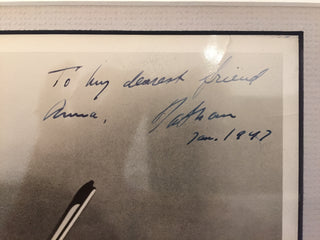 To my dearest friend
Anna, Nathan
Jan. 1947